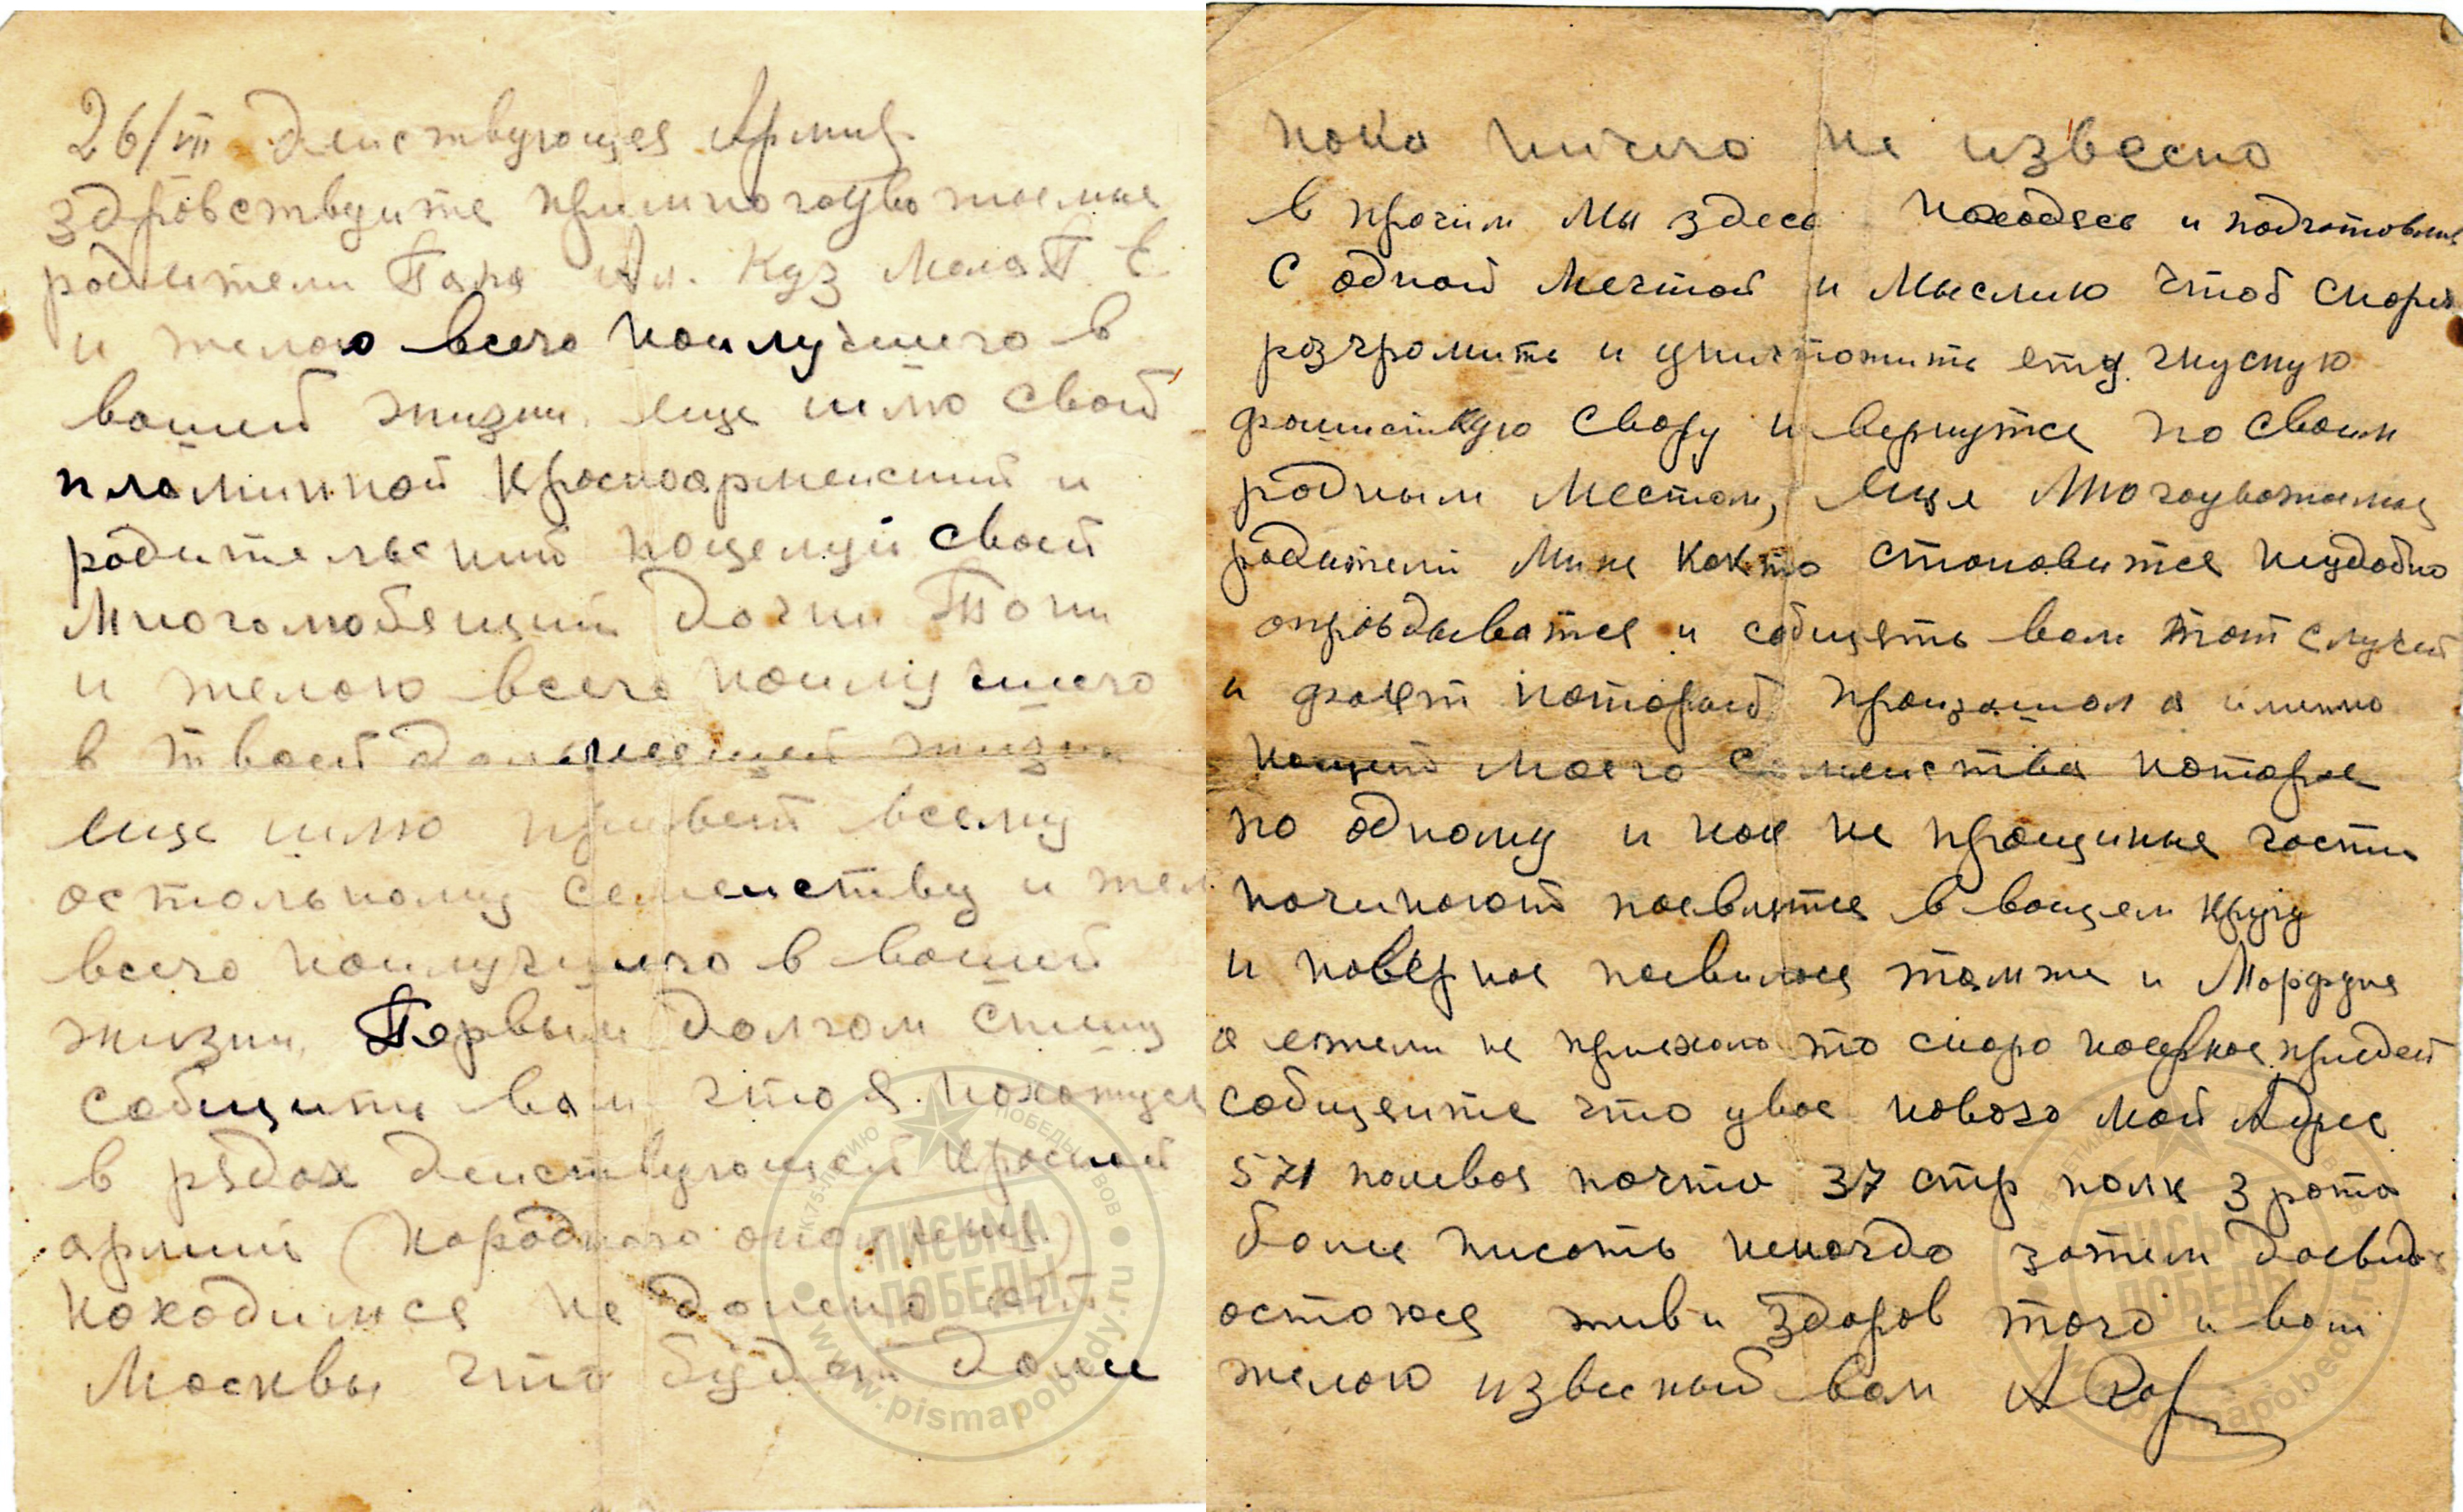 26/III Деиствующея Армия
здровствуите примногоуво жаемые
родители Папа Ал. Куз Мама П Е
и желою всего наилучшего в
вашей жизни. еще шлю свой
пламинной Красноармеиский и
родительский поцелуй своей
Многолюбящий дочки Тони
и желою всего наилучшего
в твоей дальнеешей жизни
еще шлю привет всему
остольному семеиству и жел
всего наилучшего в вашей
жизни, Первым долгом спешу
собщить вам что я нахожуся
в рядах деиствующей Красной
армии (народного ополчения)
находимся не далеко от
Москвы что будет дали
пока ничиго не извесно
в прочим мы здесь находясь и подготовлия
С одной Мечтой и Мыслию чтоб скорея
розгромить и уничтожить ету гнусную
фашисткую свору и вернутся по своим
родным местам, еще Многоуважаемые
родители Мине както становится неудобно
опровдыватся и собщять вам тот случей
и факт который произашол а именно
нащет моего семеиства которое
по одному и как не прощиные гости
начинают поевлятся в вашем кругу
и наверное поевилося тамже и Марфуня
а ежели не приехала то скоро наверное приедет
собщеите что увас нового мой Адрес
571 полевоя почто 37 стр полк 3 рота
более писать некогдо зотем досвид
остоюся живи здоров того и вам
желою извесный вам А
ПИСЬМА ПОБЕДЫ
К 75-ЛЕТИЮ ПОБЕДЫ В ВОВ
www.pismapobedy.ru
ПИСЬМА ПОБЕДЫ
www.pismapobedy.ru